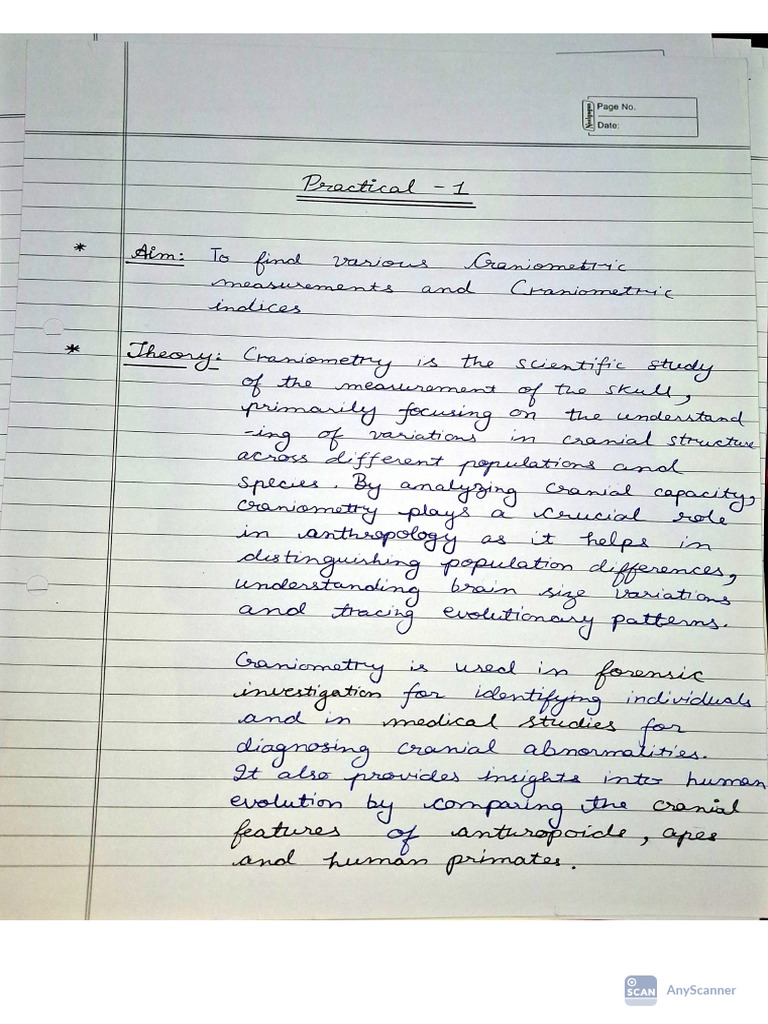 Page No.
Date:
Practical - 1
* Aim: To find various Craniometric
measurements and Craniometric
indices
* Theory: Craniometry is the scientific study
of the measurement of the skull,
primarily focusing on the understand
-ing of variations in cranial structure
across different populations and
species. By analyzing cranial capacity,
craniometry plays a crucial role
in anthropology as it helps in
distinguishing population differences,
understanding brain size variations
and tracing evolutionary patterns.
Craniometry is used in forensic
investigation for identifying individuals
and in medical studies for
diagnosing cranial abnormalities.
It also provides insights into human
evolution by comparing the cranial
features of anthropoids, apes
and human primates.
SCAN AnyScanner